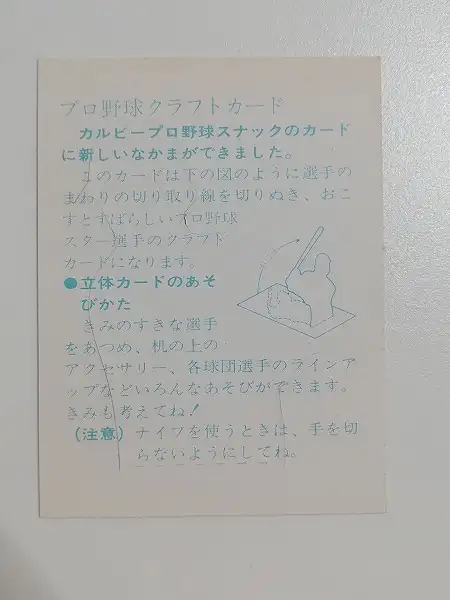 プロ野球クラフトカード
カルビープロ野球スナックのカード
に新しいなかまができました。
このカードは下の図のように選手の
まわりの切り取り線を切りぬき、おこ
すとすばらしいプロ野球
スター選手のクラフト
カードになります。
●立体カードのあそ
びかた
きみのすきな選手
をあつめ、机の上の
アクセサリー、各球団選手のラインア
ップなどいろんなあそびができます。
きみも考えてね！
（注意）ナイフを使うときは、手を切
らないようにしてね。